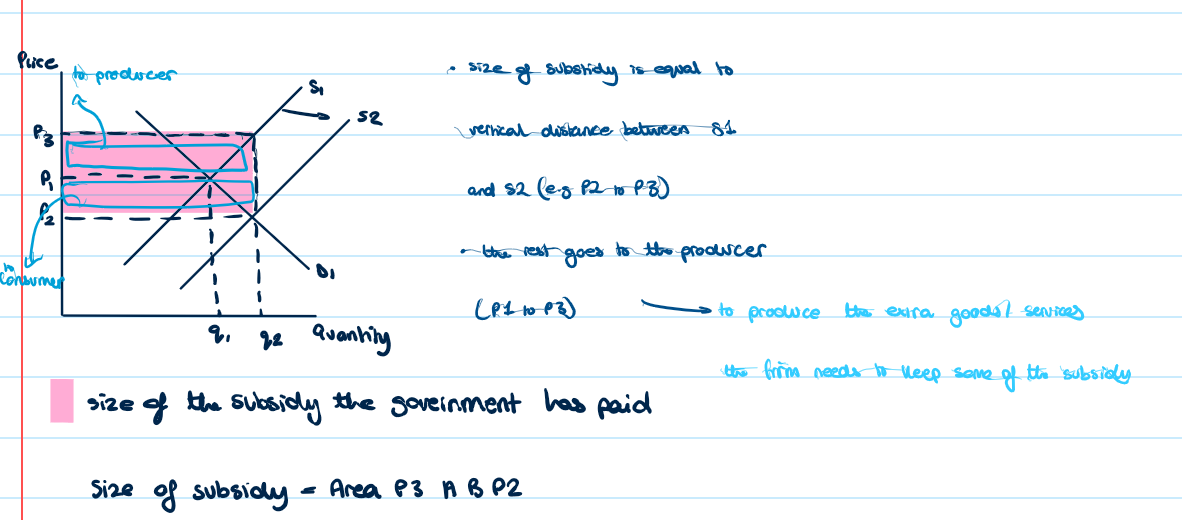 Price
to producer
S1
S2
P3
P1
P2
to
consumer
D1
q1
q2
Quantity
• size of substidy is equal to
vertical distance between S1
and S2 (e.g P2 to P3)
• the rest goes to the producer
(P1 to P3)
to produce the extra goods/ services
the frim needs to keep some of the subsidy
size of the subsidy the government has paid
Size of subsidy = Area P3 A B P2